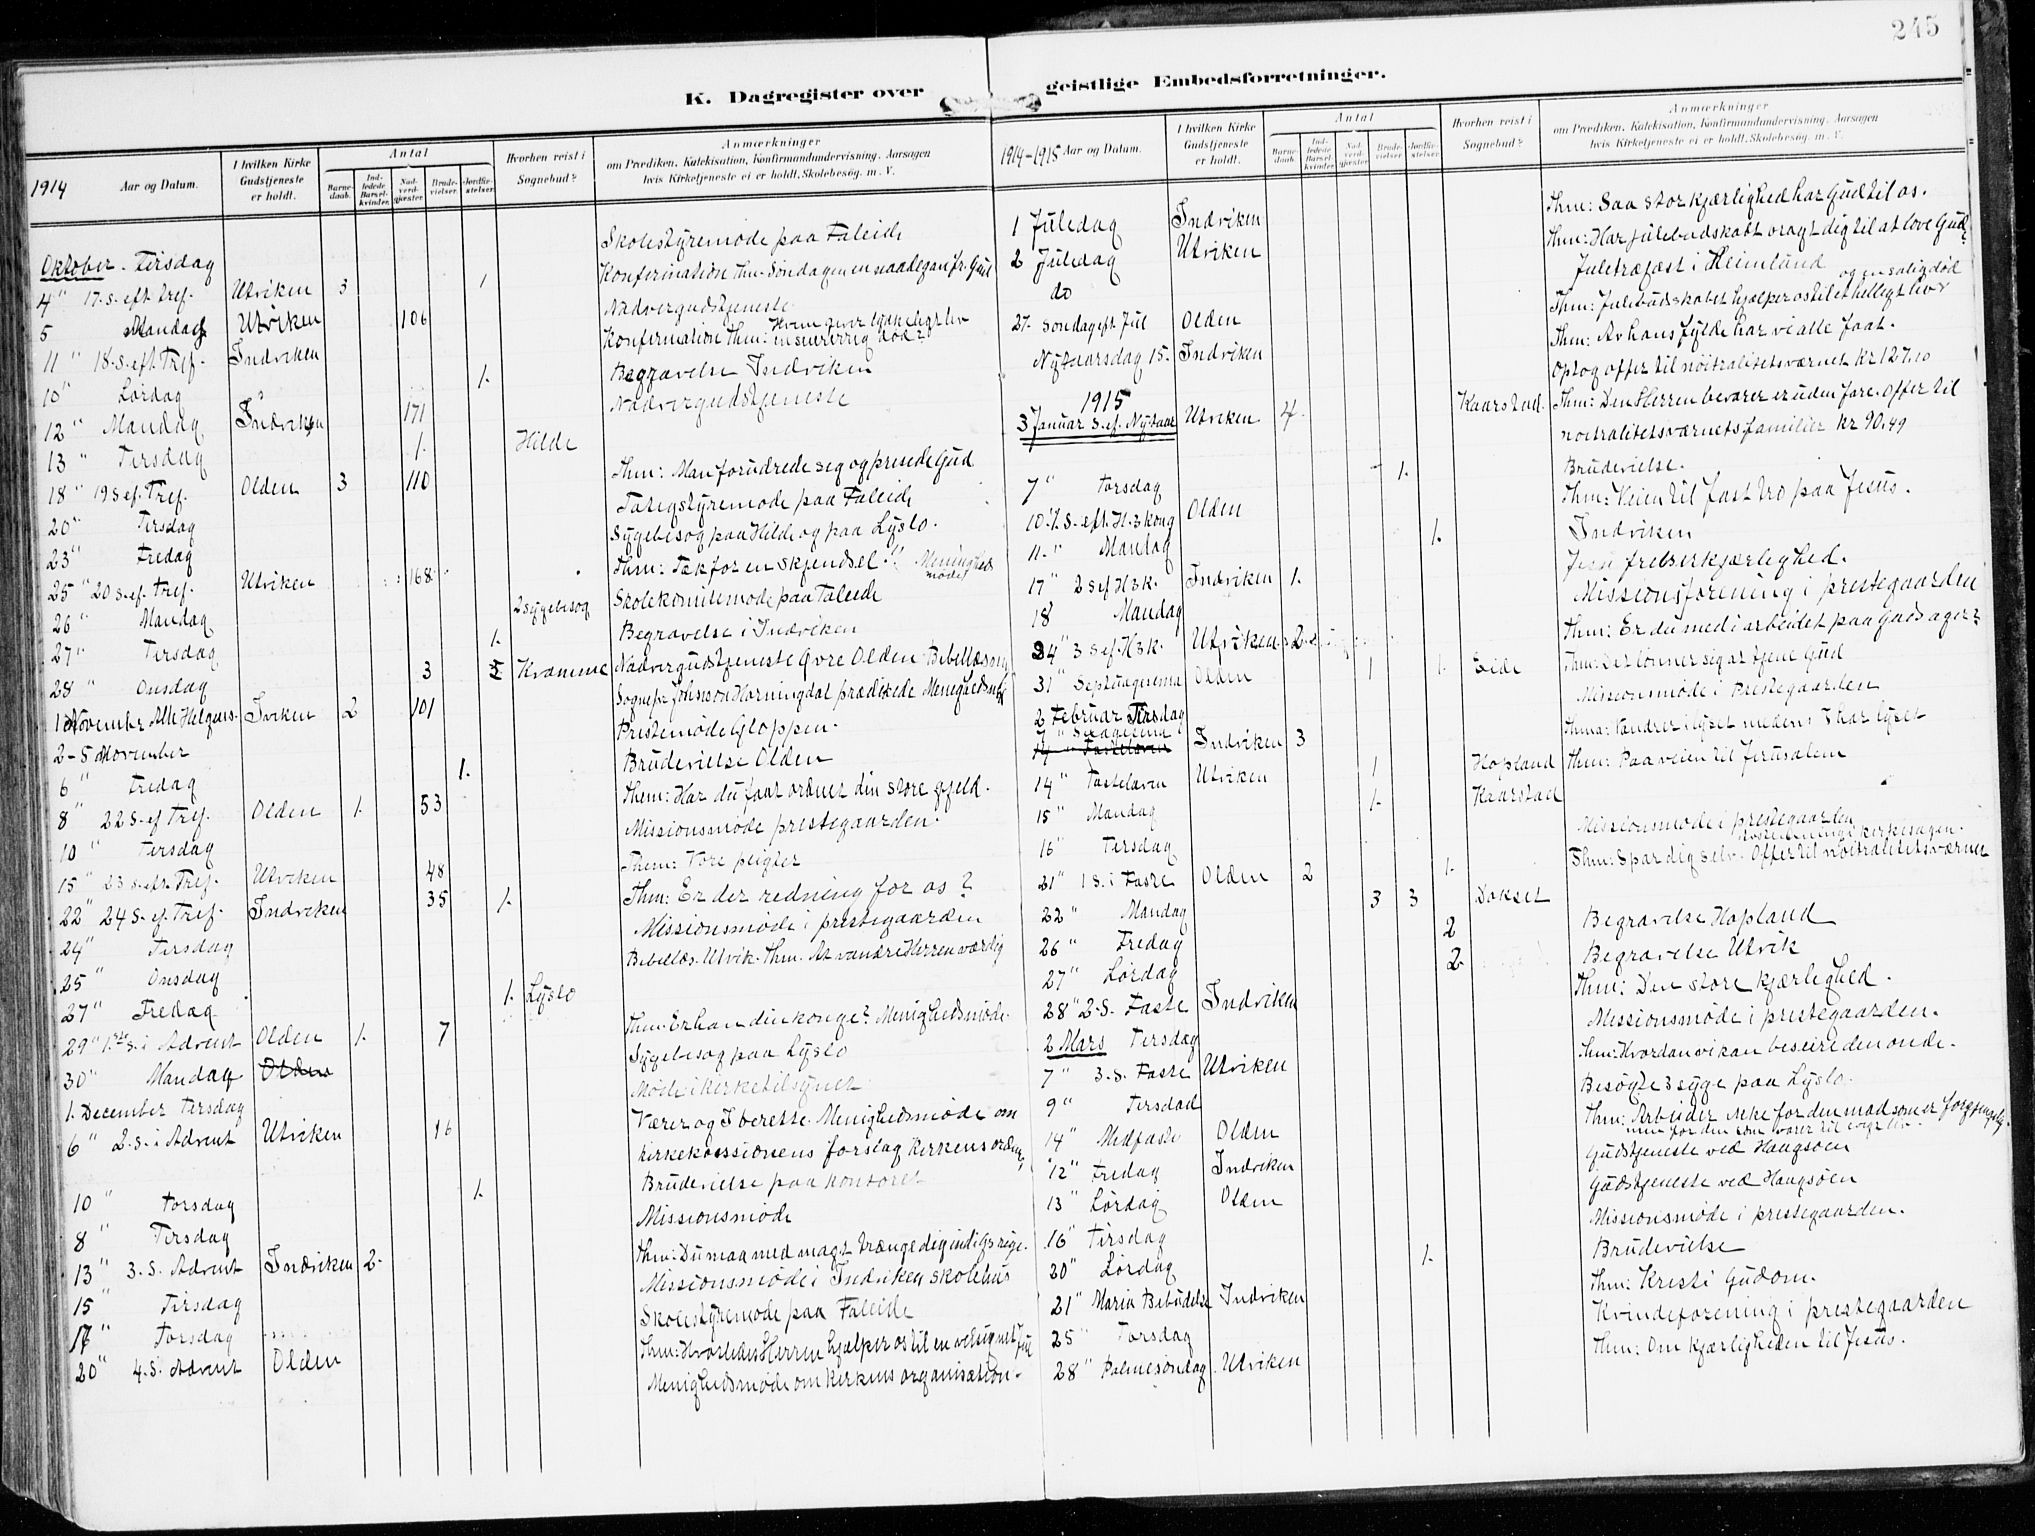 245
K. Dagregister over geistlige Embedsforretninger.
1914 Aar og Datum.
I hvilken Kirke Gudstjeneste er holdt.
Antal
Barnedaab.
Indledede Barselkvinder.
Nadverdgjester
Brudevielser
Jordfæstelser
Hvorhen reist i Sognebud?
Anmærkninger
om Prædiken, Katekisation, Konfirmandundervisning, Aarsagen
hvis Kirketjeneste ei er holdt, Skolebesøg m. V.
Oktober. Tirsdag Skolestyremøde paa Faleide
4" 17. S. eft. Tref. Utviken 3 1 Konfirmation
5 Mandag Utviken 106 Nadvergudstjeneste
11" 18. S. eft. Tref. Indviken Konfirmation Thm:
10" Lørdag 1. Begravelse Indviken
12" Mandag Indviken 171 Nadvergudstjeneste
13" Tirsdag 1. Hilde
18" 19 S. ef. Tref. Olden 3 110 Thm: Man forundrede seg og prisede Gud
20" Tirsdag paa Faleide
23" Fredag Sygebesøg paa Hilde og paa Lyslo.
25" 20 S. ef. Tref. Utviken 168 Thm: Tak for en skjendsel! Menighedsmøde
26" Mandag 2 sygebesøg Skolekomitemøde paa Faleide
27" Tirsdag 1. Begravelse i Indviken
28" Onsdag 3 Kramme Nadvergudstjeneste Øvre Olden
1 November Alle Helgens. Iviken 2 101 Sognepr Johnson Horningdal prædikede
2-5 November Prestemøde Gloppen.
6" Fredag 1. Brudevielse Olden
8" 22 S. ef Tref. Olden 1. 53 Them: Har du faat ordnet din store gjeld.
10" Tirsdag Missionsmøde prestegaarden.
15" 23 s. eft. Tref. Utviken 48 Them: Vore pligter
22" 24 S. ef. Tref. Indviken 35 1. Thm: Er der redning for os?
24" Tirsdag Missionsmøde i prestegaarden
25" Onsdag Bibellæs. Utvik. Thm. At vandre Herren værdig
27" Fredag 1. Lyslo
29" 1.ste S. i Advent Olden 1. 7 Thm. Er han din konge? Menighedsmøde.
30" Mandag Olden Sygebesøg paa Lyslo
1. December Tirsdag Møde i kirketilsynet
6" 2. S. i Advent Utviken 16 Menighedsmøde om
forslag kirkens
10" Torsdag 1. Brudevielse paa kontoret
8" Tirsdag Missionsmøde
13" 3. S. Advent Indviken 2. Thm: Du maa med magt trænge dig ind i Gs rige.
15" Tirsdag Missionsmøde i Indviken skolehus
17" Torsdag Skolestyremøde paa Faleide
20" 4. S. Advent Olden Thm: Hvorledes Herren hjælper os til en velsignet Jul
Menighedsmøde om kirkens organisation.
1914-1915 Aar og Datum.
I hvilken Kirke Gudstjeneste er holdt.
Antal
Barnedaab.
Indledede Barselkvinder
Nadverdgjester
Brudevielser
Jordfæstelser.
Hvorhen reist i Sognebud?
Anmærkninger
om Prædiken, Katekisation, Konfirmandundervisning, Aarsagen
hvis Kirketjeneste ei er holdt, Skolebesøg m. V.
1 Juledag Indviken Thm: Saa stor kjærlighed har Gud til os.
2 Juledag Utviken Thm: Har julebudskabt vragt dig til at love Gud?
do Juletræfest i Heimlund
27. Søndag eft Jul Olden Thm: Julebudskabet hjælper os til et helligt liv og en salig død
Nytaarsdag 15. Indviken Thm: Av hans fylde har vi alle faat.
Optog offer til nøitralitetsværnet Kr 127.10
1915
3 Januar S. ef. Nytaar Utviken 4. Kaarstad. Thm: Den Herren bevarer er uden fare. Offer til
nøitralitetsværnets familier kr 90.49
7" Torsdag 1. Brudevielse.
10. 1. S. eft. H. 3 kong Olden Thm: Veien til fast tro paa Jesus.
11." Mandag 1. Indviken
17" 2 S ef H3k. Indviken 1. Jesu frelserkjærlighed.
18 Mandag Missionsforening i prestegaarden
24" 3 S ef. H3k. Utviken 2 Thm: Er du med i arbeidet paa Guds ager?
31" Septuagesima Olden 1. Eide Thm: Det lønner sig at tjene Gud
2 Februar Tirsdag Missionsmøde i Prestegaarden
7" Indviken 3 Thma: Vandrer i lyset medens I har lyset
14" Fastelaven Utviken 1 Hopland Thm: Paa veien til Jerusalem
15" Mandag 1. Kaarstad
16" Tirsdag Missionsmøde i prestegaarden
21" 1 S. i Faste Olden 2 1. Thm: Spar dig selv. Offer til nøitralitetsværnet
22" Mandag 3 3 Dokset
26" Fredag 2 Begravelse Hopland
27" Lørdag 2. Begravelse Utvik
28" 2. S. Faste Indviken Thm: Den store kjærlighed.
2 Mars Tirsdag Missionsmøde i prestegaarden.
7" 3. S. Faste Utviken Thm: Hvordan vi kan beseire den onde.
9" Tirsdad Besøgte 3 syge paa Lyslo.
14" Midfaste Olden Thm: Arbeider ikke for den mad som er forgjengelig.
men for den som varer til evigt liv.
12" Fredag Indviken Gudstjeneste ved Haugsøen
13" Lørdag Olden Gudstjeneste ved Haugsøen
16" Tirsdag Missionsmøde i prestegaarden.
20" Lørdag 1. Brudevielse
21" Maria Bebudelse Indviken Thm: Kristi Gudom.
25" Torsdag Kvindeforening i prestegaarden
28" Palmesøndag. Utviken Thm: Om kjærligheden til Jesus.